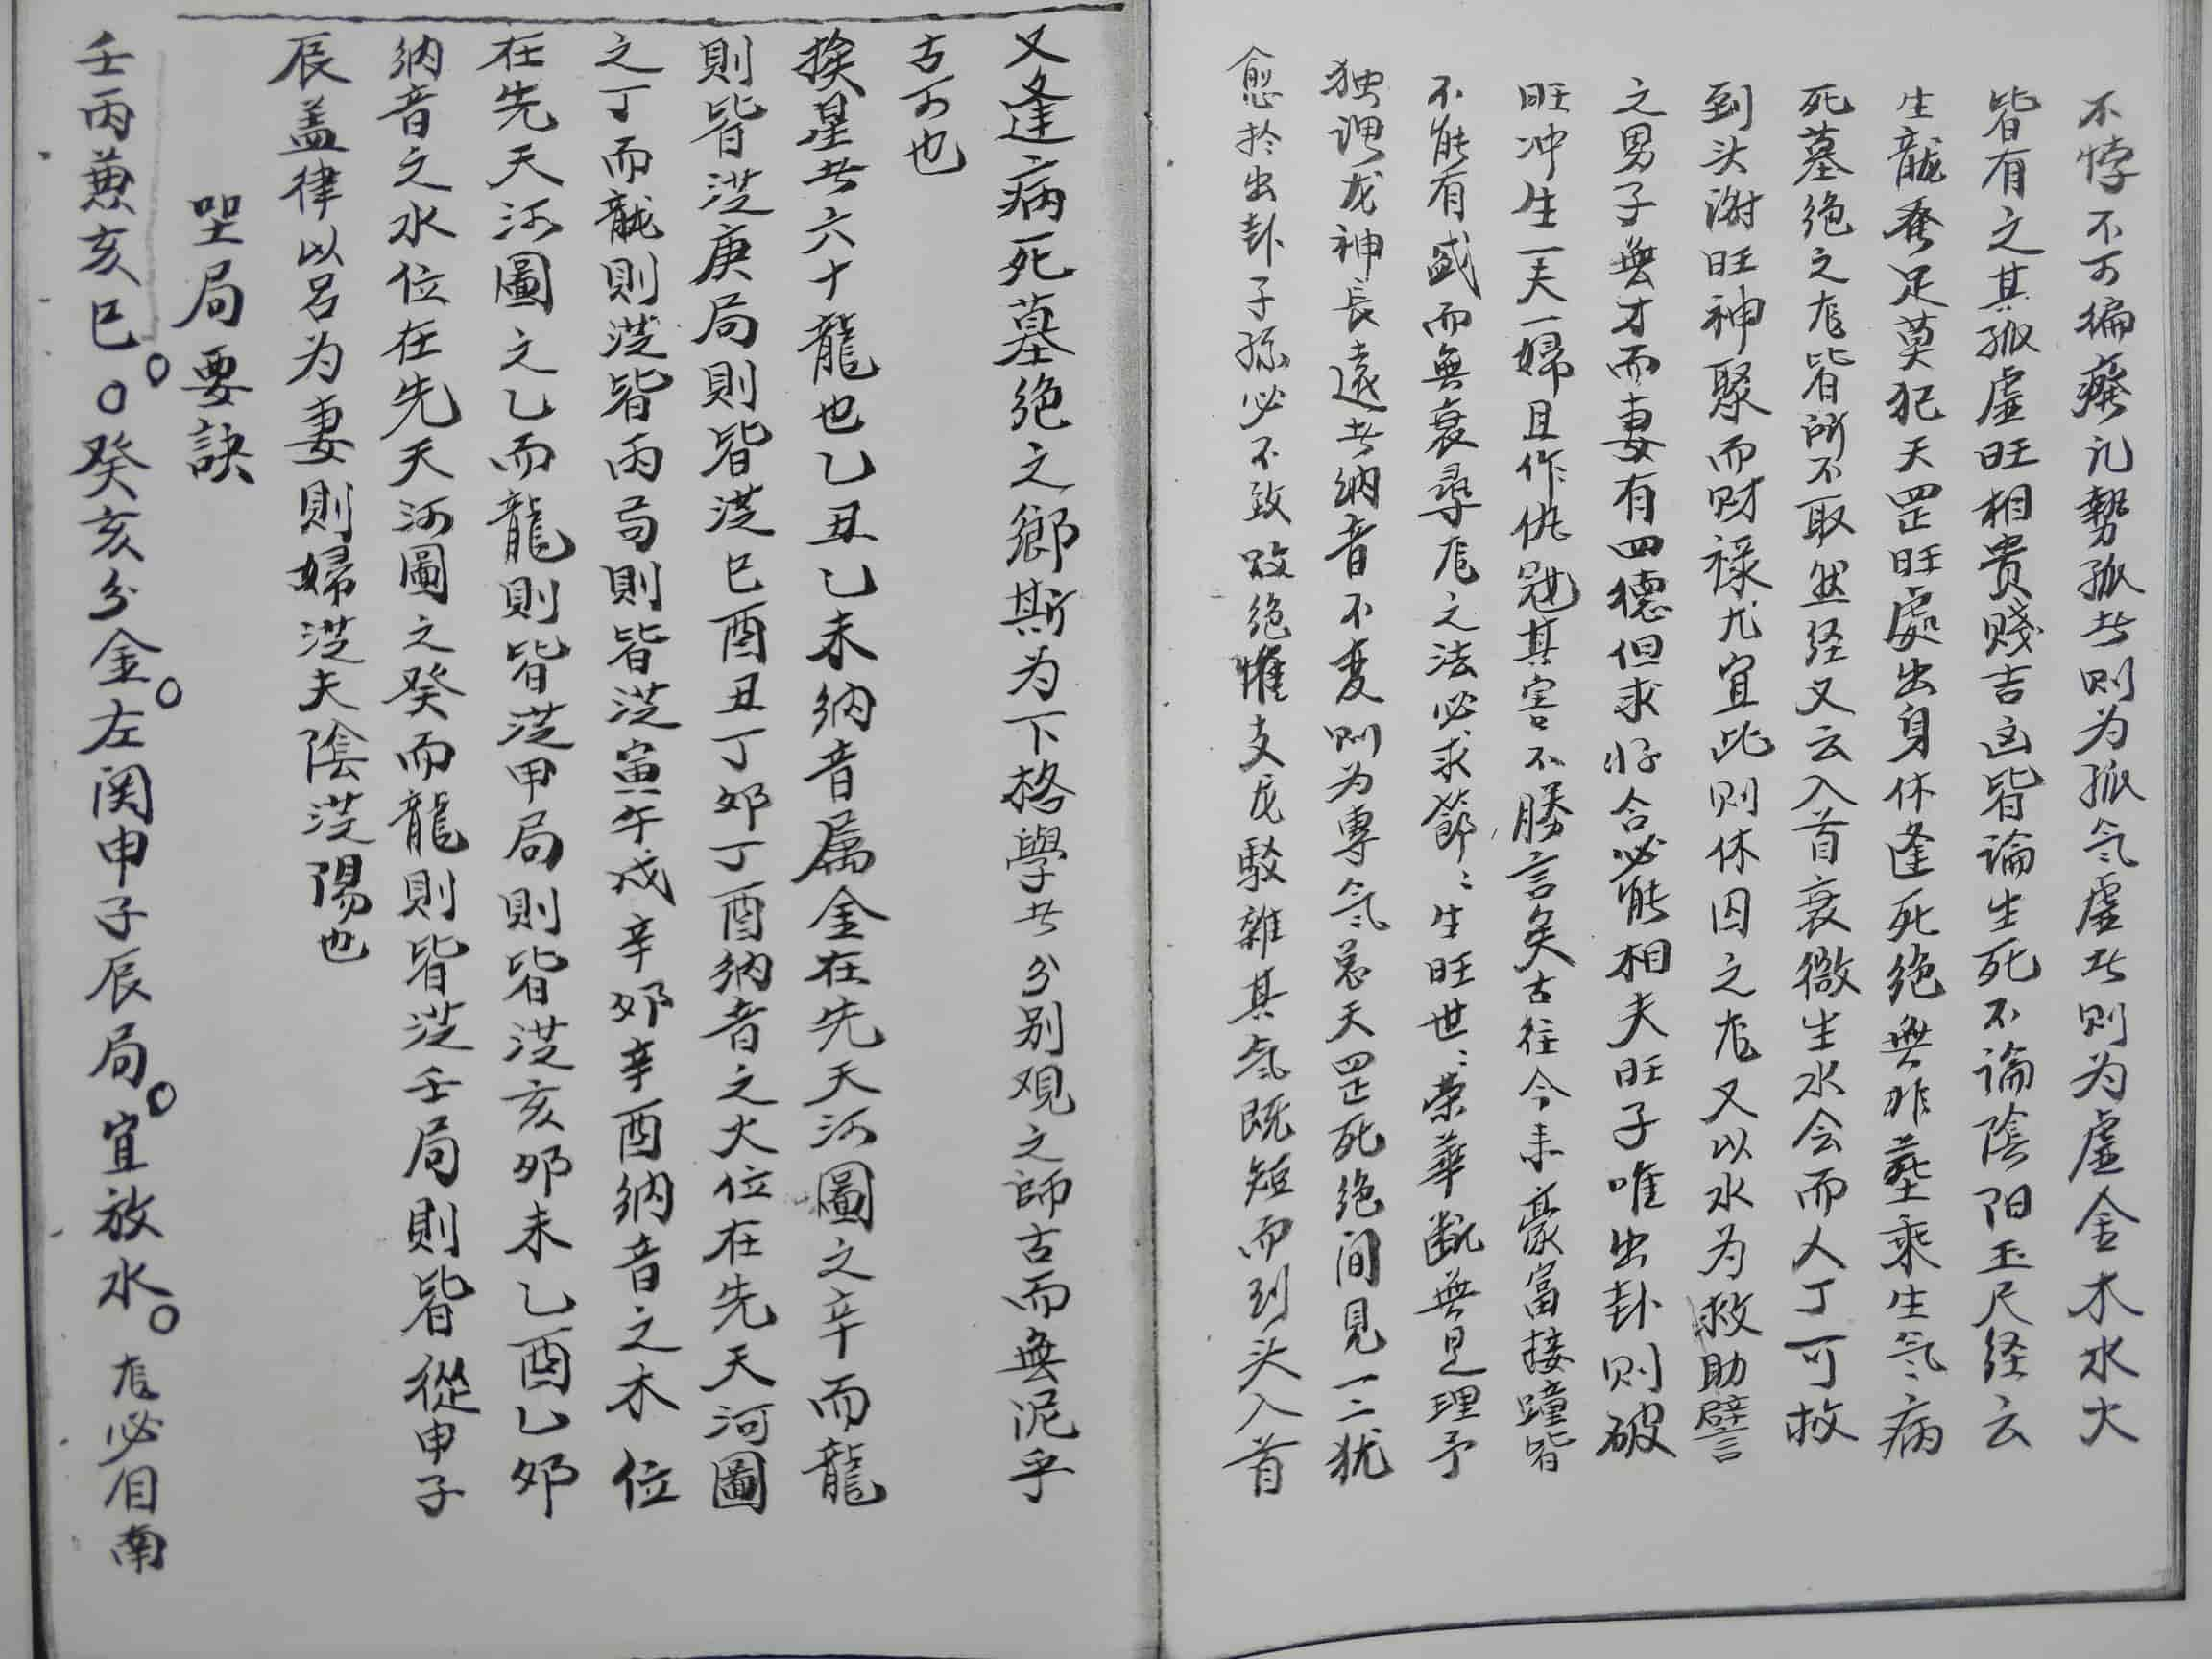 不悖不可偏癈凢勢孤者则为孤气虚者则为虚金木水火
皆有之其孤虚旺相贵贱吉凶皆論生死不論陰阳玉尺经云
生龍吞足莫犯天罡旺處出身休逢死绝無非塟乘生气病
死墓绝之龙皆所不取然经又云入首衰微生水会而人丁可救
到头谢旺神聚而财禄尤宜此则休囚之龙又以水为救助譬
之男子無才而妻有四德但求好合必能相夫旺子唯出卦则破
旺冲生一夫一婦且作仇冠其害不勝言矣古往今来豪富接踵皆
不能有盛而無衰尋龙之法必求節〻生旺世〻荣華断無是理予
独谓龙神長遠者纳音不变则为專气忌天罡死绝间見一二犹
愈於出卦子孫必不致败绝惟支龙駁雜其气既短而到头入首
又逢病死墓绝之鄉斯为下格學者分别观之師古而無泥乎
古可也
挨星者六十龍也乙丑乙未纳音属金在先天河圖之辛而龍
則皆從庚局則皆從巳酉丑丁夘丁酉纳音之火位在先天河圖
之丁而龍則從皆丙局則皆從寅午戍辛夘辛酉纳音之木位
在先天河圖之乙而龍則皆從甲局則皆從亥夘未乙酉乙夘
纳音之水位在先天河圖之癸而龍則皆從壬局則皆從申子
辰盖律以吕为妻則婦從夫陰從陽也
坐局要訣
壬丙兼亥巳。○癸亥分金。左関申子辰局。宜放水。龙必自南